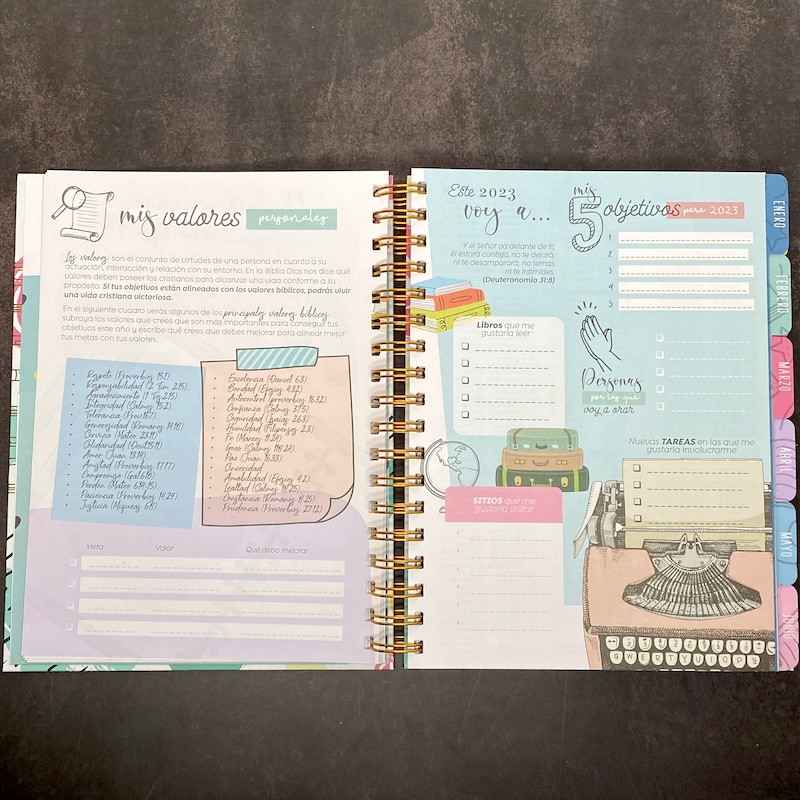 mis valores personales
Los valores son el conjunto de virtudes de una persona en cuanto a su
actuación, interacción y relación con su entorno. En la Biblia Dios nos dice qué
valores deben poseer los cristianos para alcanzar una vida conforme a su
propósito. Si tus objetivos están alineados con los valores bíblicos, podrás vivir
una vida cristiana victoriosa.
En el siguiente cuadro verás algunos de los principales valores bíblicos,
subraya los valores que crees que son más importantes para conseguir tus
objetivos este año y escribe qué crees que debes mejorar para alinear mejor
tus metas con tus valores.
Respeto (Proverbios 15:1)
Responsabilidad (2 Tim. 2:15)
Agradecimiento (1 Tes 2:15)
Integridad (Salmos 15:2)
Tolerancia (Prov.
Generosidad (Romanos 14:16)
Servicio (Mateo 23:11)
Solidaridad (Deut.15:11)
Amor (Juan 13:14)
Amistad (Proverbios 17:17)
Compromiso (Gal.6:9)
Perdón (Mateo 6:14,15)
Paciencia (Proverbios 14:29)
Justicia (Miqueas 6:8)
Excelencia (Daniel 6:3)
Bondad (Efesios 4:32)
Autocontrol (proverbios 16:32)
Confianza (Salmos 37:5)
Seguridad (Isaías 26:3)
Humildad (Filipenses 2:3)
Fe (Marcos 11:24)
Gozo (Salmos 118:24)
Paz (Juan 16:33)
Sinceridad
Amabilidad (Efesios 4:2)
Lealtad (Salmos 18:25)
Constancia (Romanos 8:25)
Prudencia (Proverbios 27:12)
Meta Valor Qué debo mejorar
Este 2023
voy a...
Y el Señor va delante de ti;
él estará contigo, no te dejará,
ni te desamparará; no temas
ni te intimides.
(Deuteronomio 31:8)
mis
5 objetivos para 2023
1.
2.
3.
4.
5.
Libros que me
gustaría leer
Personas
por las que
voy a orar
Nuevas TAREAS en las que me
gustaría involucrarme
SITIOS que me
gustaría visitar
QWERTYUIOP
ENERO
FEBRERO
MARZO
ABRIL
MAYO
JUNIO